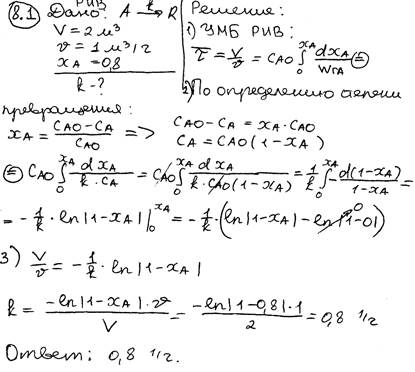 8.1 Дано: РИВ A →k R
V = 2 м³
v = 1 м³/г
x_A = 0,8
k - ?
Решение:
1) УМБ РИВ:
τ = V/v = C_AO ∫₀^{x_A} dx_A / W_rA ⊜
2) По определению степени
превращения:
x_A = (C_AO - C_A) / C_AO => C_AO - C_A = x_A · C_AO
C_A = C_AO (1 - x_A)
⊜ C_AO ∫₀^{x_A} dx_A / (k · C_A) = C_AO ∫₀^{x_A} dx_A / (k · C_AO (1 - x_A)) = 1/k ∫₀^{x_A} - d(1-x_A) / (1-x_A) =
= - 1/k · ln|1-x_A| |₀^{x_A} = - 1/k · (ln|1-x_A| - ln|1-0|) 0
3) V/v = - 1/k · ln|1-x_A|
k = -ln|1-x_A| · v / V = -ln|1-0,8| · 1 / 2 = 0,8 1/г
Ответ: 0,8 1/г.